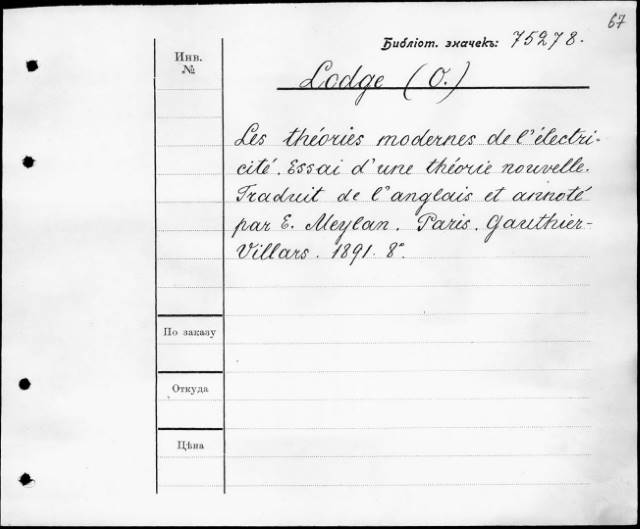 67
Библіот. значекъ: 75278.
Инв.
№
Lodge (O.)
Les théories modernes de l'électri-
cité. Essai d'une théorie nouvelle.
Traduit de l'anglais et annoté
par E. Meylan. Paris. Gauthier-
Villars. 1891. 8°.
По заказу
Откуда
Цѣна